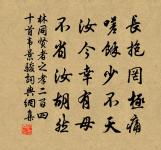 長抱罔極痛
嗟餘少不天
汝今幸有母
不省汝胡然
林同賢者之孝二百四
十首韋景駿詞典網集